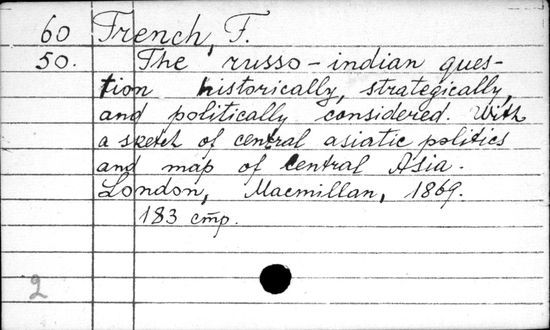 60 French, F.
50. The russo-indian ques-
tion historically, strategically,
and politically considered. With
a sketch of central asiatic politics
and map of Central Asia.
London, Macmillan, 1869.
183 стр.
2